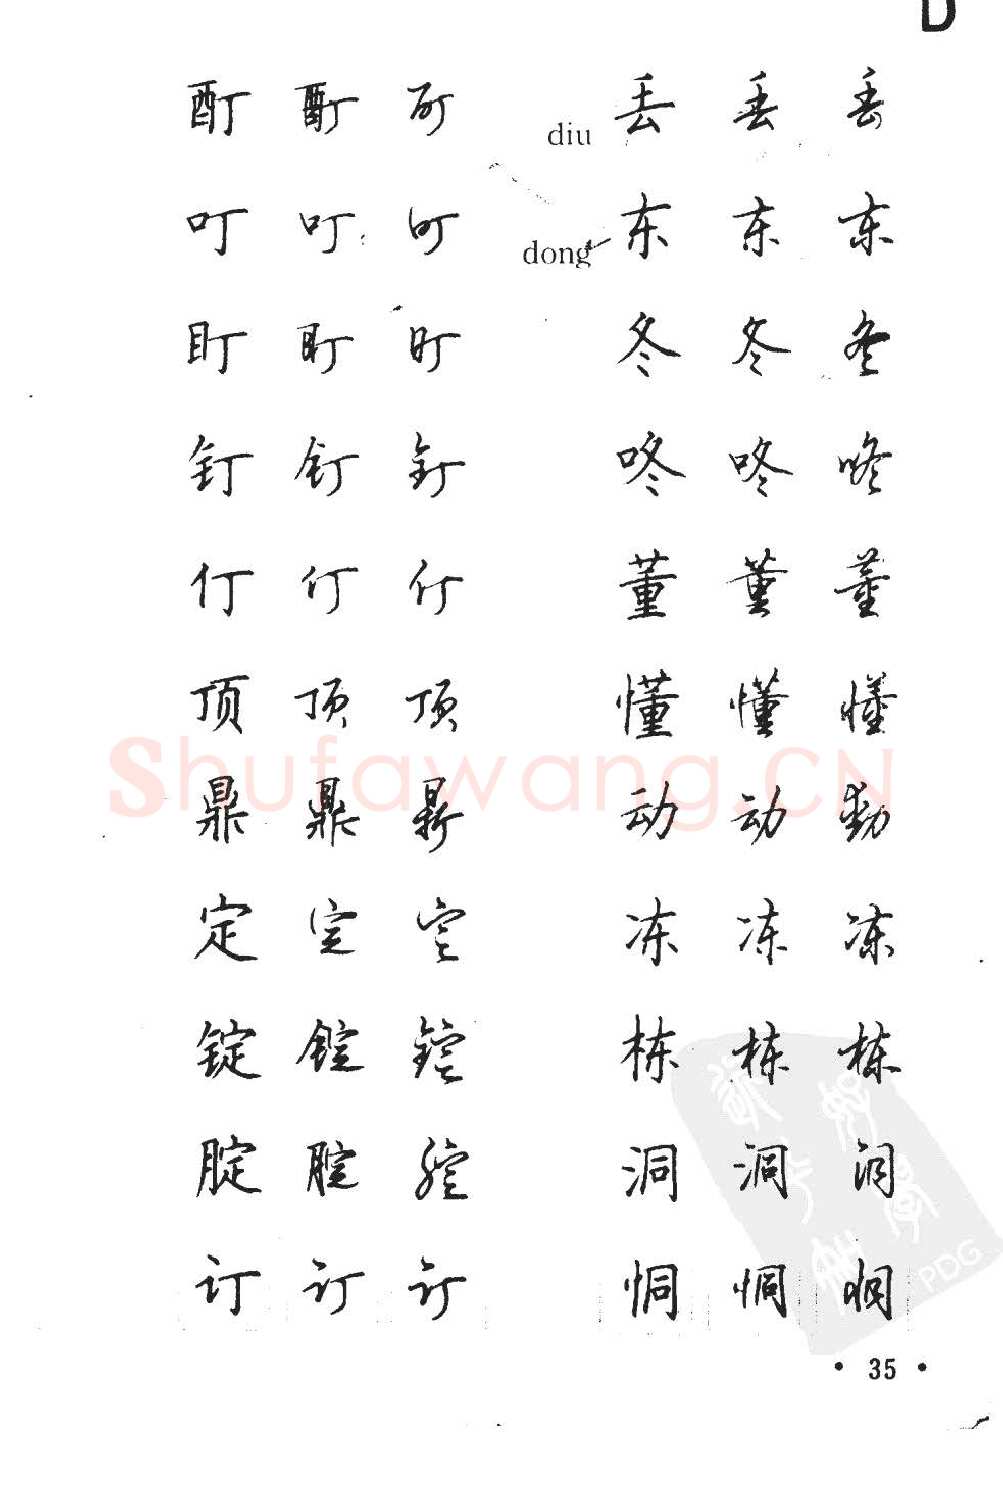 D
酊 酊 酊
叮 叮 叮
盯 盯 盯
钉 钉 钉
仃 仃 仃
顶 顶 顶
鼎 鼎 鼎
定 定 定
锭 锭 锭
腚 腚 腚
订 订 订
diu 丢 丢 丢
dong 东 东 东
冬 冬 冬
咚 咚 咚
董 董 董
懂 懂 懂
动 动 动
冻 冻 冻
栋 栋 栋
洞 洞 洞
恫 恫 恫
Shufawang.CN
PDG
• 35 •